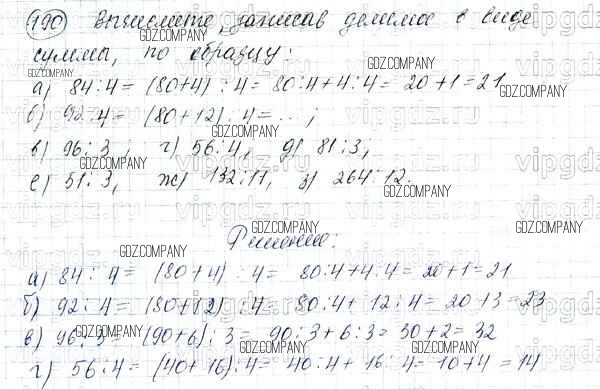 190) Вычислите, записав делимое в виде
суммы, по образцу:
а) 84 : 4 = (80+4) : 4 = 80 : 4 + 4 : 4 = 20 + 1 = 21
б) 92 : 4 = (80 + 12) : 4 = ... ;
в) 96 : 3 ; г) 56 : 4, д) 81 : 3,
е) 51 : 3, ж) 132 : 11, з) 264 : 12.
Решение:
а) 84 : 4 = (80 + 4) : 4 = 80 : 4 + 4 : 4 = 20 + 1 = 21
б) 92 : 4 = (80 + 12) : 4 = 80 : 4 + 12 : 4 = 20 + 3 = 23
в) 96 : 3 = (90 + 6) : 3 = 90 : 3 + 6 : 3 = 30 + 2 = 32
г) 56 : 4 = (40 + 16) : 4 = 40 : 4 + 16 : 4 = 10 + 4 = 14